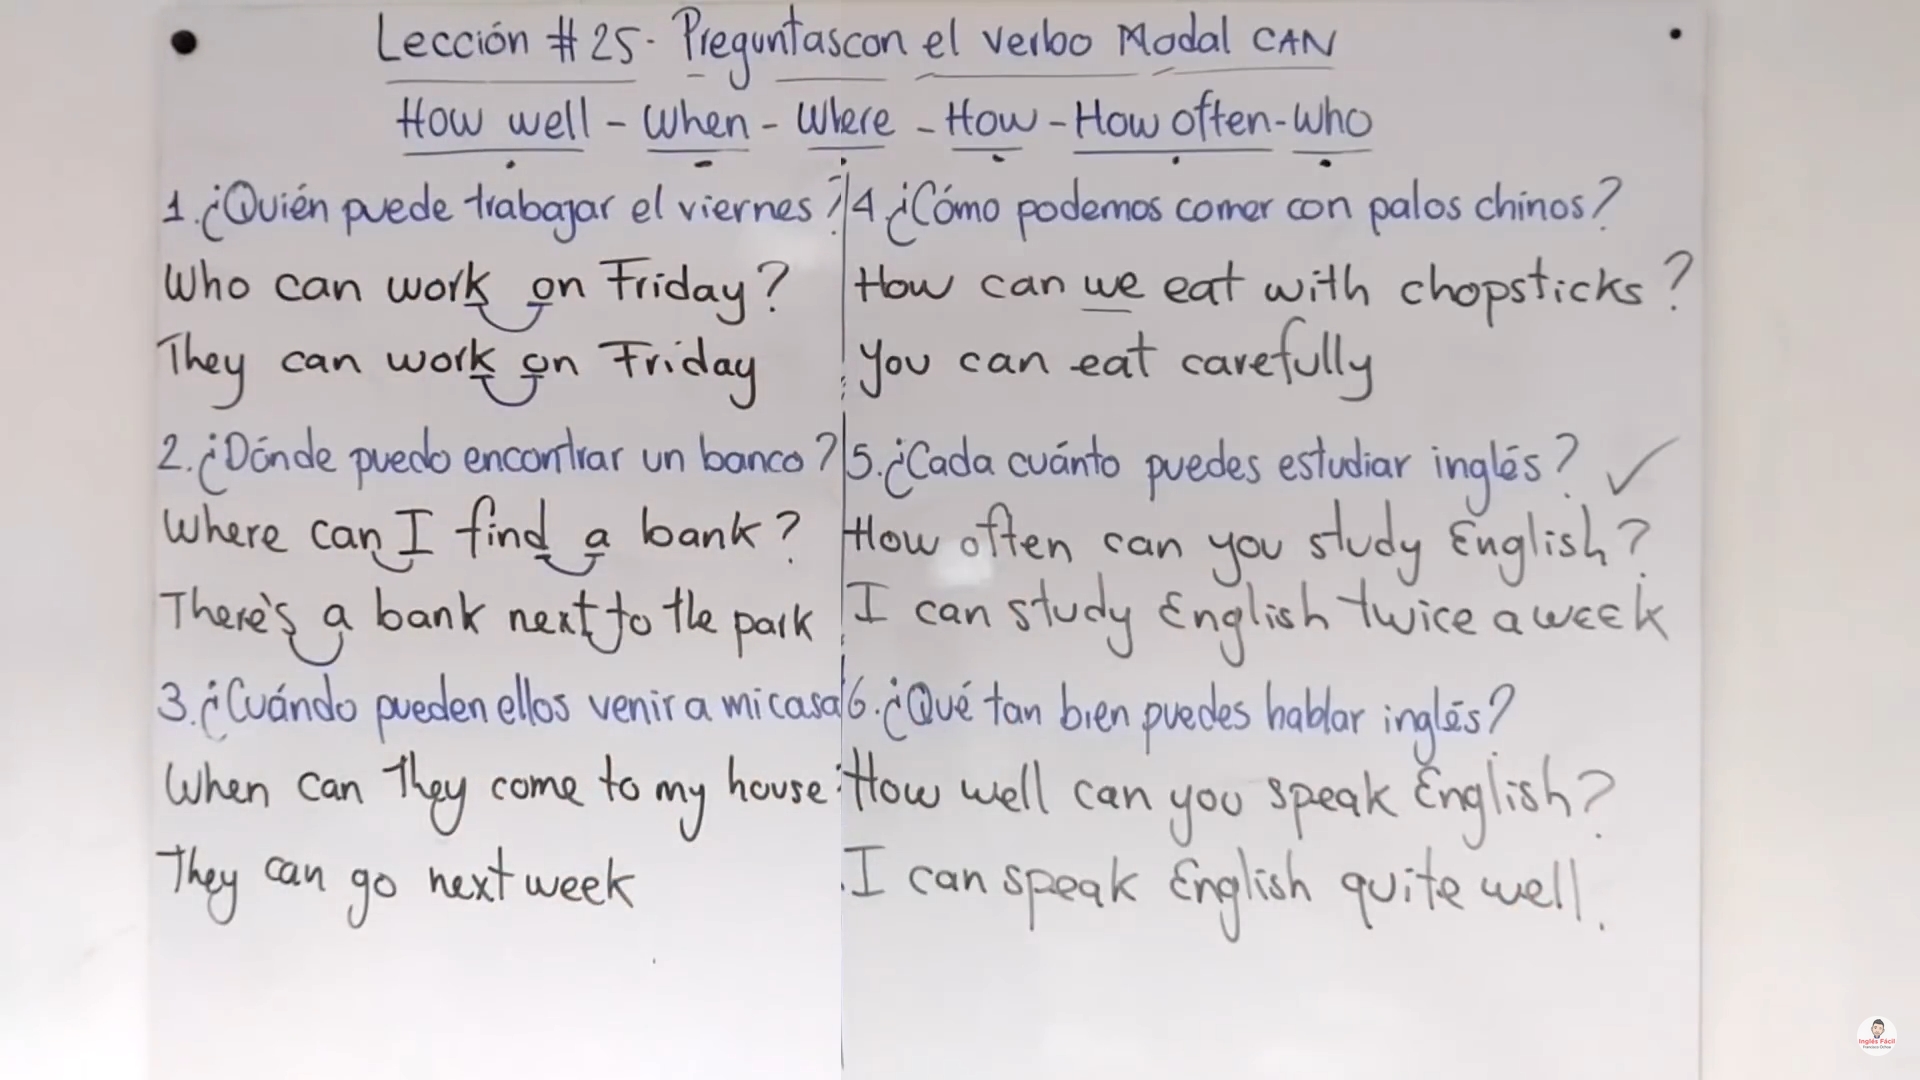 Lección # 25- Preguntas con el verbo Modal CAN
How well - When - Where - How - How often - Who
1. ¿Quién puede trabajar el viernes?
Who can work on Friday?
They can work on Friday
2. ¿Dónde puedo encontrar un banco?
Where can I find a bank?
There's a bank next to the park
3. ¿Cuándo pueden ellos venir a mi casa
When can they come to my house
They can go next week
4. ¿Cómo podemos comer con palos chinos?
How can we eat with chopsticks?
You can eat carefully
5. ¿Cada cuánto puedes estudiar inglés?
How often can you study English?
I can study English twice a week
6. ¿Qué tan bien puedes hablar inglés?
How well can you speak English?
I can speak English quite well.
Inglés Fácil